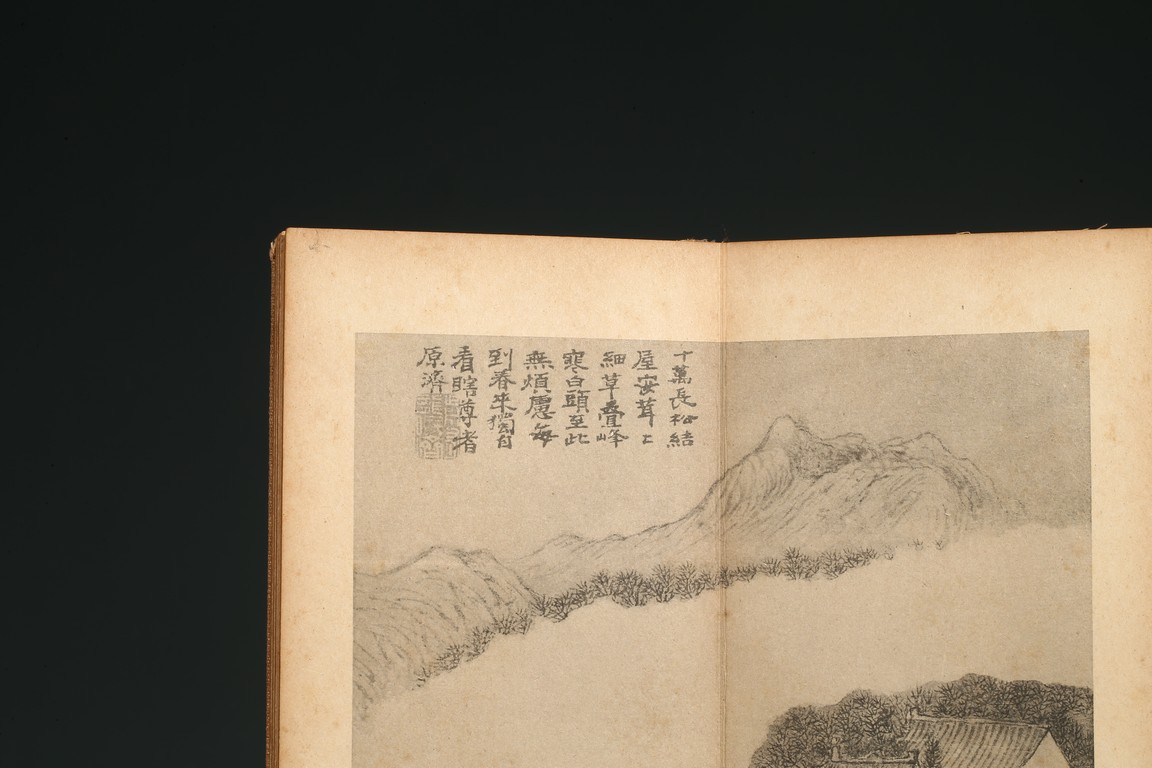 十萬長松結
屋安茸〻
細草疊峰
寒白頭至此
無煩慮每
到春來獨自
看瞎尊者
原濟